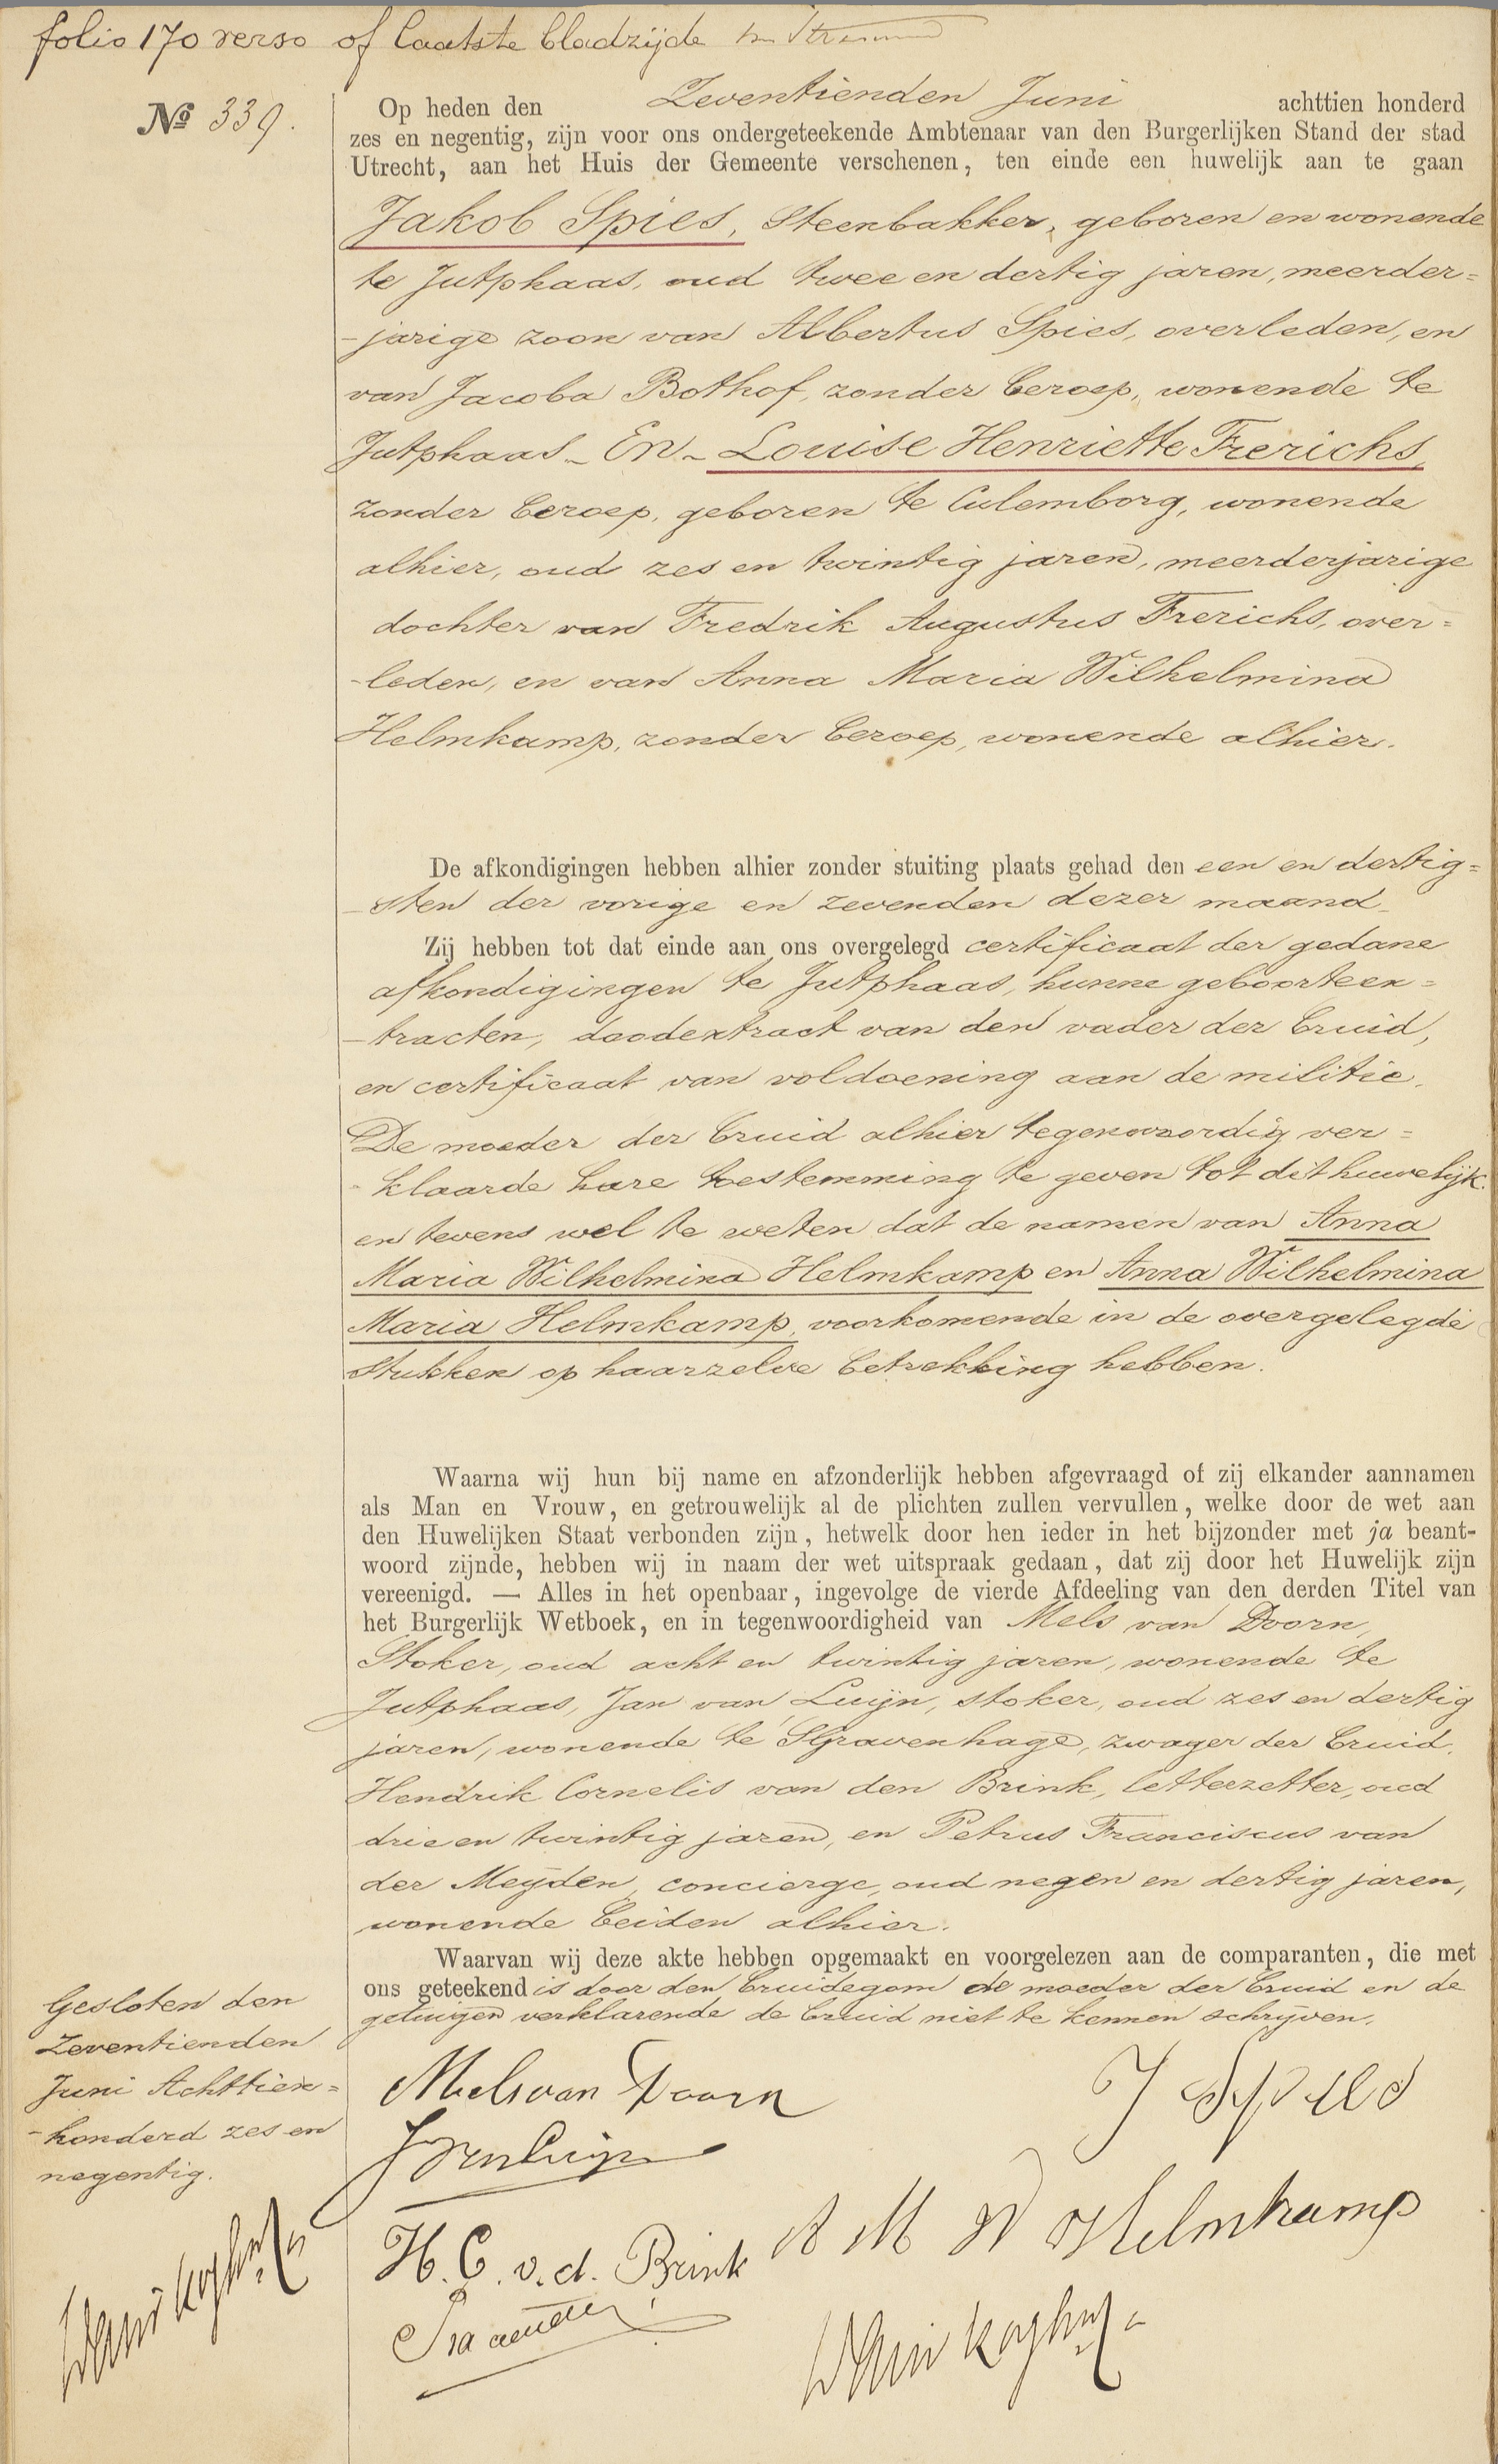 folio 170 verso of laatste bladzijde
№ 339.
Op heden den Zeventienden Juni achttien honderd
zes en negentig, zijn voor ons ondergeteekende Ambtenaar van den Burgerlijken Stand der stad
Utrecht, aan het Huis der Gemeente verschenen, ten einde een huwelijk aan te gaan
Jakob Spies, Steenbakker, geboren en wonende
te Jutphaas, oud twee en dertig jaren, meerder=
-jarige zoon van Albertus Spies, overleden, en
van Jacoba Bothof, zonder beroep, wonende te
Jutphaas _ En _ Louise Henriette Frerichs,
zonder beroep, geboren te Culemborg, wonende
alhier, oud zes en twintig jaren, meerderjarige
dochter van Fredrik Augustus Frerichs, over=
-leden, en van Anna Maria Wilhelmina
Helmkamp, zonder beroep, wonende alhier.
De afkondigingen hebben alhier zonder stuiting plaats gehad den een en dertig=
-sten der vorige en zevenden dezer maand_
Zij hebben tot dat einde aan ons overgelegd certificaat der gedane
afkondigingen te Jutphaas, hunne geboorteex=
-tracten, doodextract van den vader der bruid,
en certificaat van voldoening aan de militie.
De moeder der bruid alhier tegenwoordig ver=
-klaarde hare toestemming te geven tot dit huwelijk.
en tevens wel te weten dat de namen van Anna
Maria Wilhelmina Helmkamp en Anna Wilhelmina
Maria Helmkamp, voorkomende in de overgelegde
stukken op haarzelve betrekking hebben.
Waarna wij hun bij name en afzonderlijk hebben afgevraagd of zij elkander aannamen
als Man en Vrouw, en getrouwelijk al de plichten zullen vervullen, welke door de wet aan
den Huwelijken Staat verbonden zijn, hetwelk door hen ieder in het bijzonder met ja beant-
woord zijnde, hebben wij in naam der wet uitspraak gedaan, dat zij door het Huwelijk zijn
vereenigd. — Alles in het openbaar, ingevolge de vierde Afdeeling van den derden Titel van
het Burgerlijk Wetboek, en in tegenwoordigheid van Mels van Doorn,
Stoker, oud acht en twintig jaren, wonende te
Jutphaas, Jan van Luijn, stoker, oud zes en dertig
jaren, wonende te 'SGravenhage, zwager der bruid.
Hendrik Cornelis van den Brink, letterzetter, oud
drie en twintig jaren, en Petrus Franciscus van
der Meijden, concierge, oud negen en dertig jaren,
wonende beiden alhier.
Waarvan wij deze akte hebben opgemaakt en voorgelezen aan de comparanten, die met
ons geteekend is door den bruidegom de moeder der bruid en de
getuigen verklarende de bruid niet te kennen schrijven.
Gesloten den
Zeventienden
Juni Achttien=
-honderd zes en
negentig.
Mels van Doorn
J Spies
J van Luijn
A M W Helmkamp
H. C. v. d. Brink